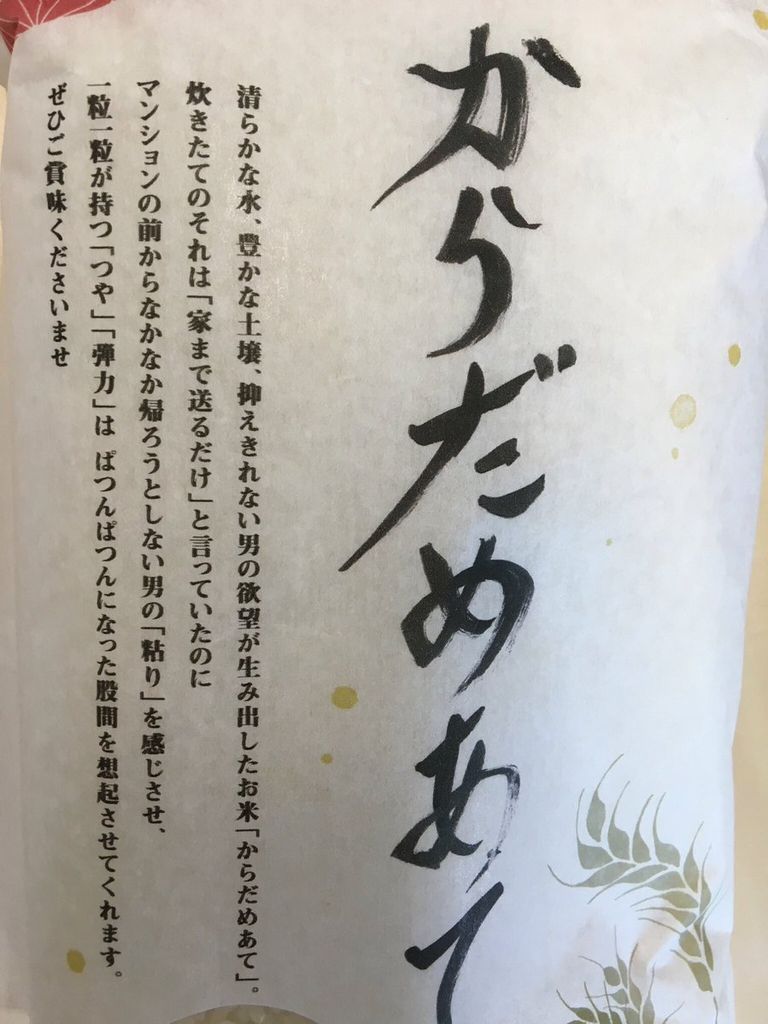 からだめあて
清らかな水、豊かな土壌、抑えきれない男の欲望が生み出したお米「からだめあて」。
炊きたてのそれは「家まで送るだけ」と言っていたのに
マンションの前からなかなか帰ろうとしない男の「粘り」を感じさせ、
一粒一粒が持つ「つや」「弾力」は ぱつんぱつんになった股間を想起させてくれます。
ぜひご賞味くださいませ